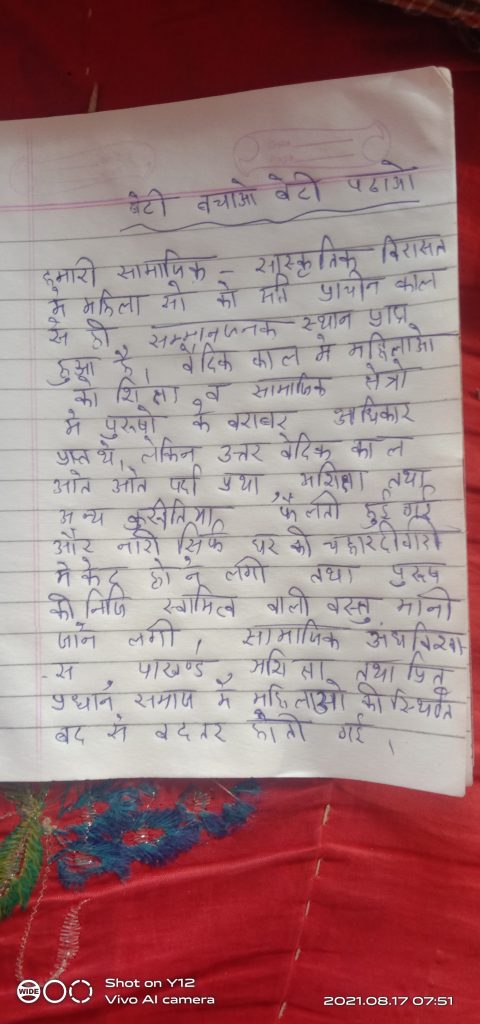 बेटी बचाओ बेटी पढाओ
हमारी सामाजिक - सांस्कृतिक विरासत
मे महिला ओ को प्राचीन काल
से ही सम्मानजनक स्थान प्राप्त
हुआ है, वैदिक काल मे महिलाओ
को शिक्षा व सामाजिक क्षेत्रो
मे पुरूषो के बराबर अधिकार
प्राप्त थे, लेकिन उत्तर वैदिक काल
आते आते पर्दा प्रथा, अशिक्षा तथा
अन्य कुरूतिया फैलती हुई गई
और नारी सिर्फ घर की
मे केद होने लगी तथा पुरूष
की निजि स्वामित्व वाली वस्तु मानी
जाने लगी, सामाजिक अंधविश्वा
-स पाखण्ड अशिक्षा तथा पितृ
प्रधान समाज मे महिलाओ की स्थिति
बद से बदतर होती गई,
Shot on Y12
Vivo AI camera
WIDE
2021.08.17 07:51